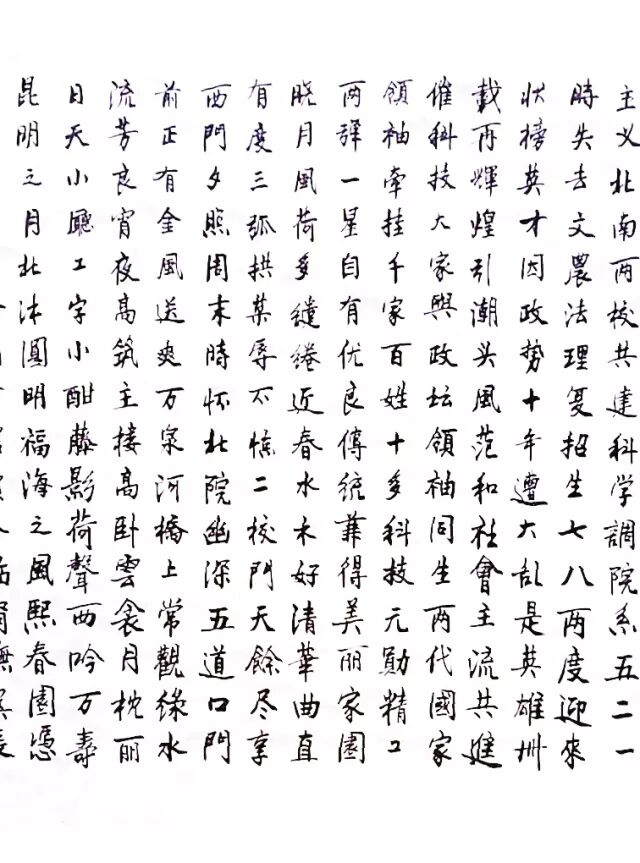 主义北南两校共建科学調院系五二一
時失去文農法理复招生七八两度迎來
状榜英才因政势十年遭大乱是英雄卅
載再輝煌引潮头風范和社會主流共進
催科技大家興政坛領袖同生两代國家
領袖牵挂千家百姓十多科技元勋精工
两彈一星自有优良傳統兼得美丽家園
晚月風荷多缱绻近春水木好清華曲直
有度三弧拱某辱不惊二校門天餘尽享
西門夕照周末時怀北院幽深五道口門
前正有金風送爽万泉河橋上常觀綠水
流芳良宵夜高筑主接高卧雲衾月枕丽
日天小廳工字小酣藤影荷聲西吟万壽
昆明之月北沐圓明福海之風熙春園憑